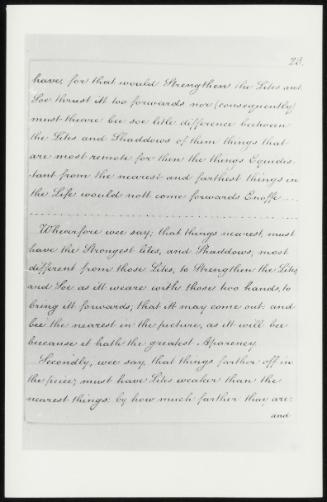 23.
have, for that would Strengthen the Lites and
Soe thrust itt too forwards nor (consequently)
must theire bee soe litle difference between
the Lites and Shaddows of them things that
are most remote for then the things Equedis
tant from the nearest and farthest things in
the Life would nott come forwards Enoffe ....
Whearfore wee say; that things nearest, must
have the Strongest lites, and Shaddows, most
different from those Lites, to Strengthen the Lites,
and Soe as itt weare with those two hands, to
bring itt forwards; that itt may come out and
bee the nearest in the picture, as itt will bee
because it hath the greatest Aparency.
Secondly, wee say, that things farther off in
the peice; must have Lites weaker than the
nearest things: by how much farther they are:
and